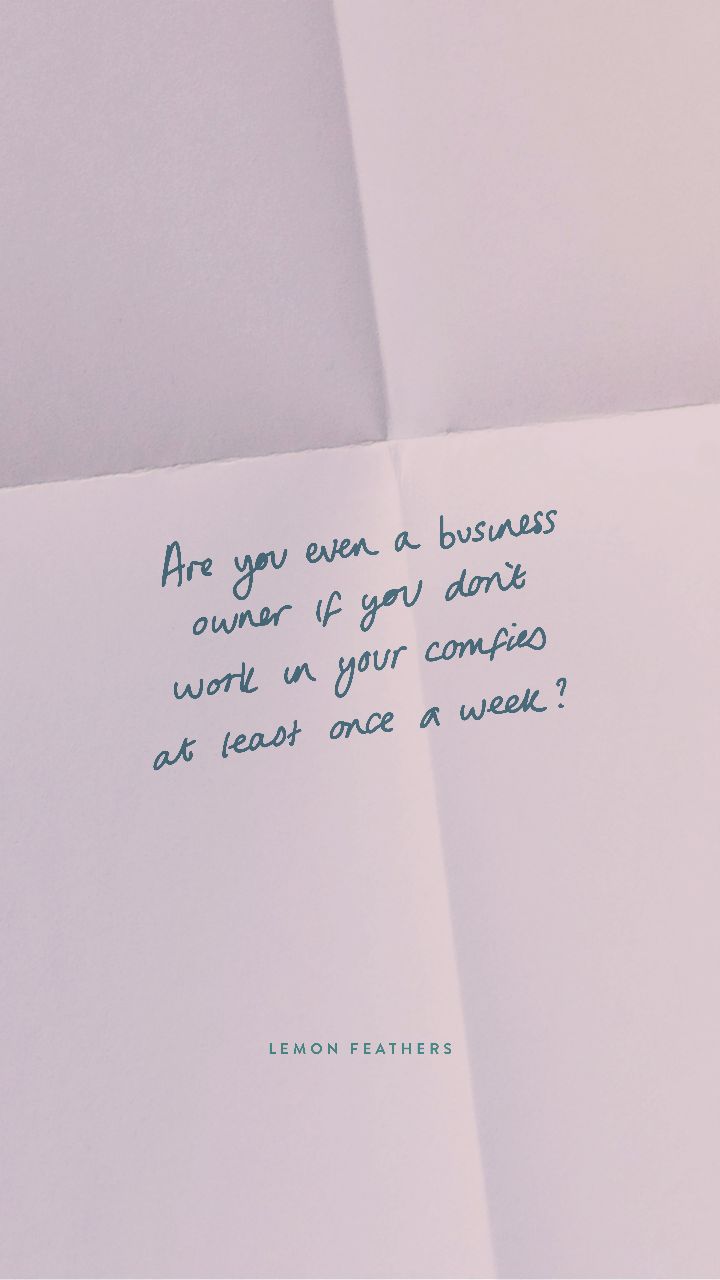 Are you even a business
owner if you don't
work in your comfies
at least once a week?
LEMON FEATHERS